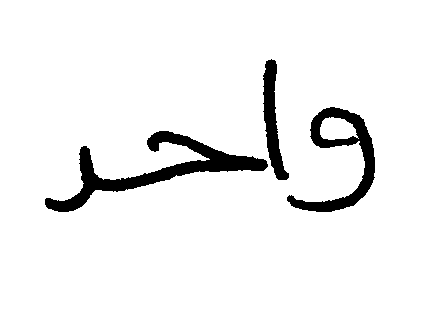 واحد